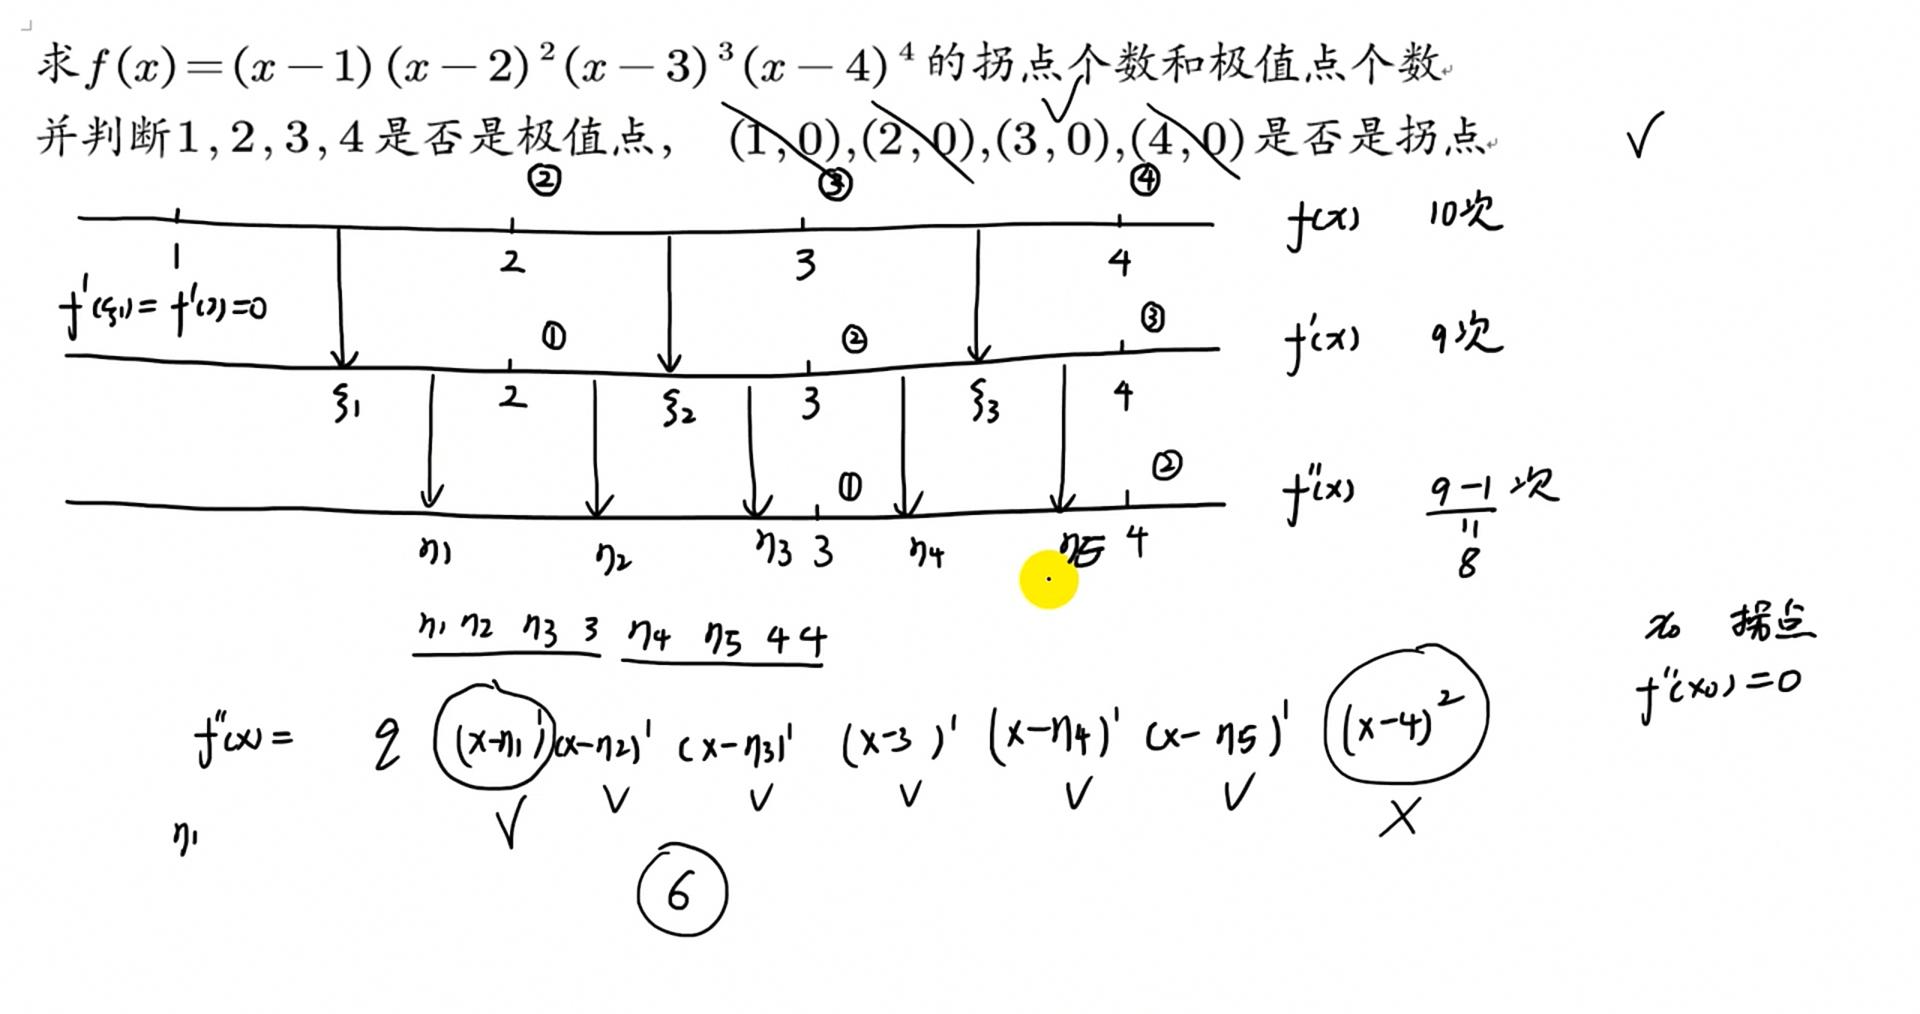 求f(x)=(x-1)(x-2)²(x-3)³(x-4)⁴的拐点个数和极值点个数
并判断1,2,3,4是否是极值点, (1,0),(2,0),(3,0),(4,0)是否是拐点
② ③ ④
1 2 3 4 f(x) 10次
f'(ξ1)=f'(2)=0
① ② ③
ξ1 2 ξ2 3 ξ3 4 f'(x) 9次
① ②
η1 η2 η3 3 η4 η5 4 f''(x) 9-1次
"
8
η1 η2 η3 3 η4 η5 4 4
x0 拐点
f''(x0)=0
f''(x)= 2 (x-η1)'(x-η2)'(x-η3)'(x-3)'(x-η4)'(x-η5)'(x-4)²
η1
6